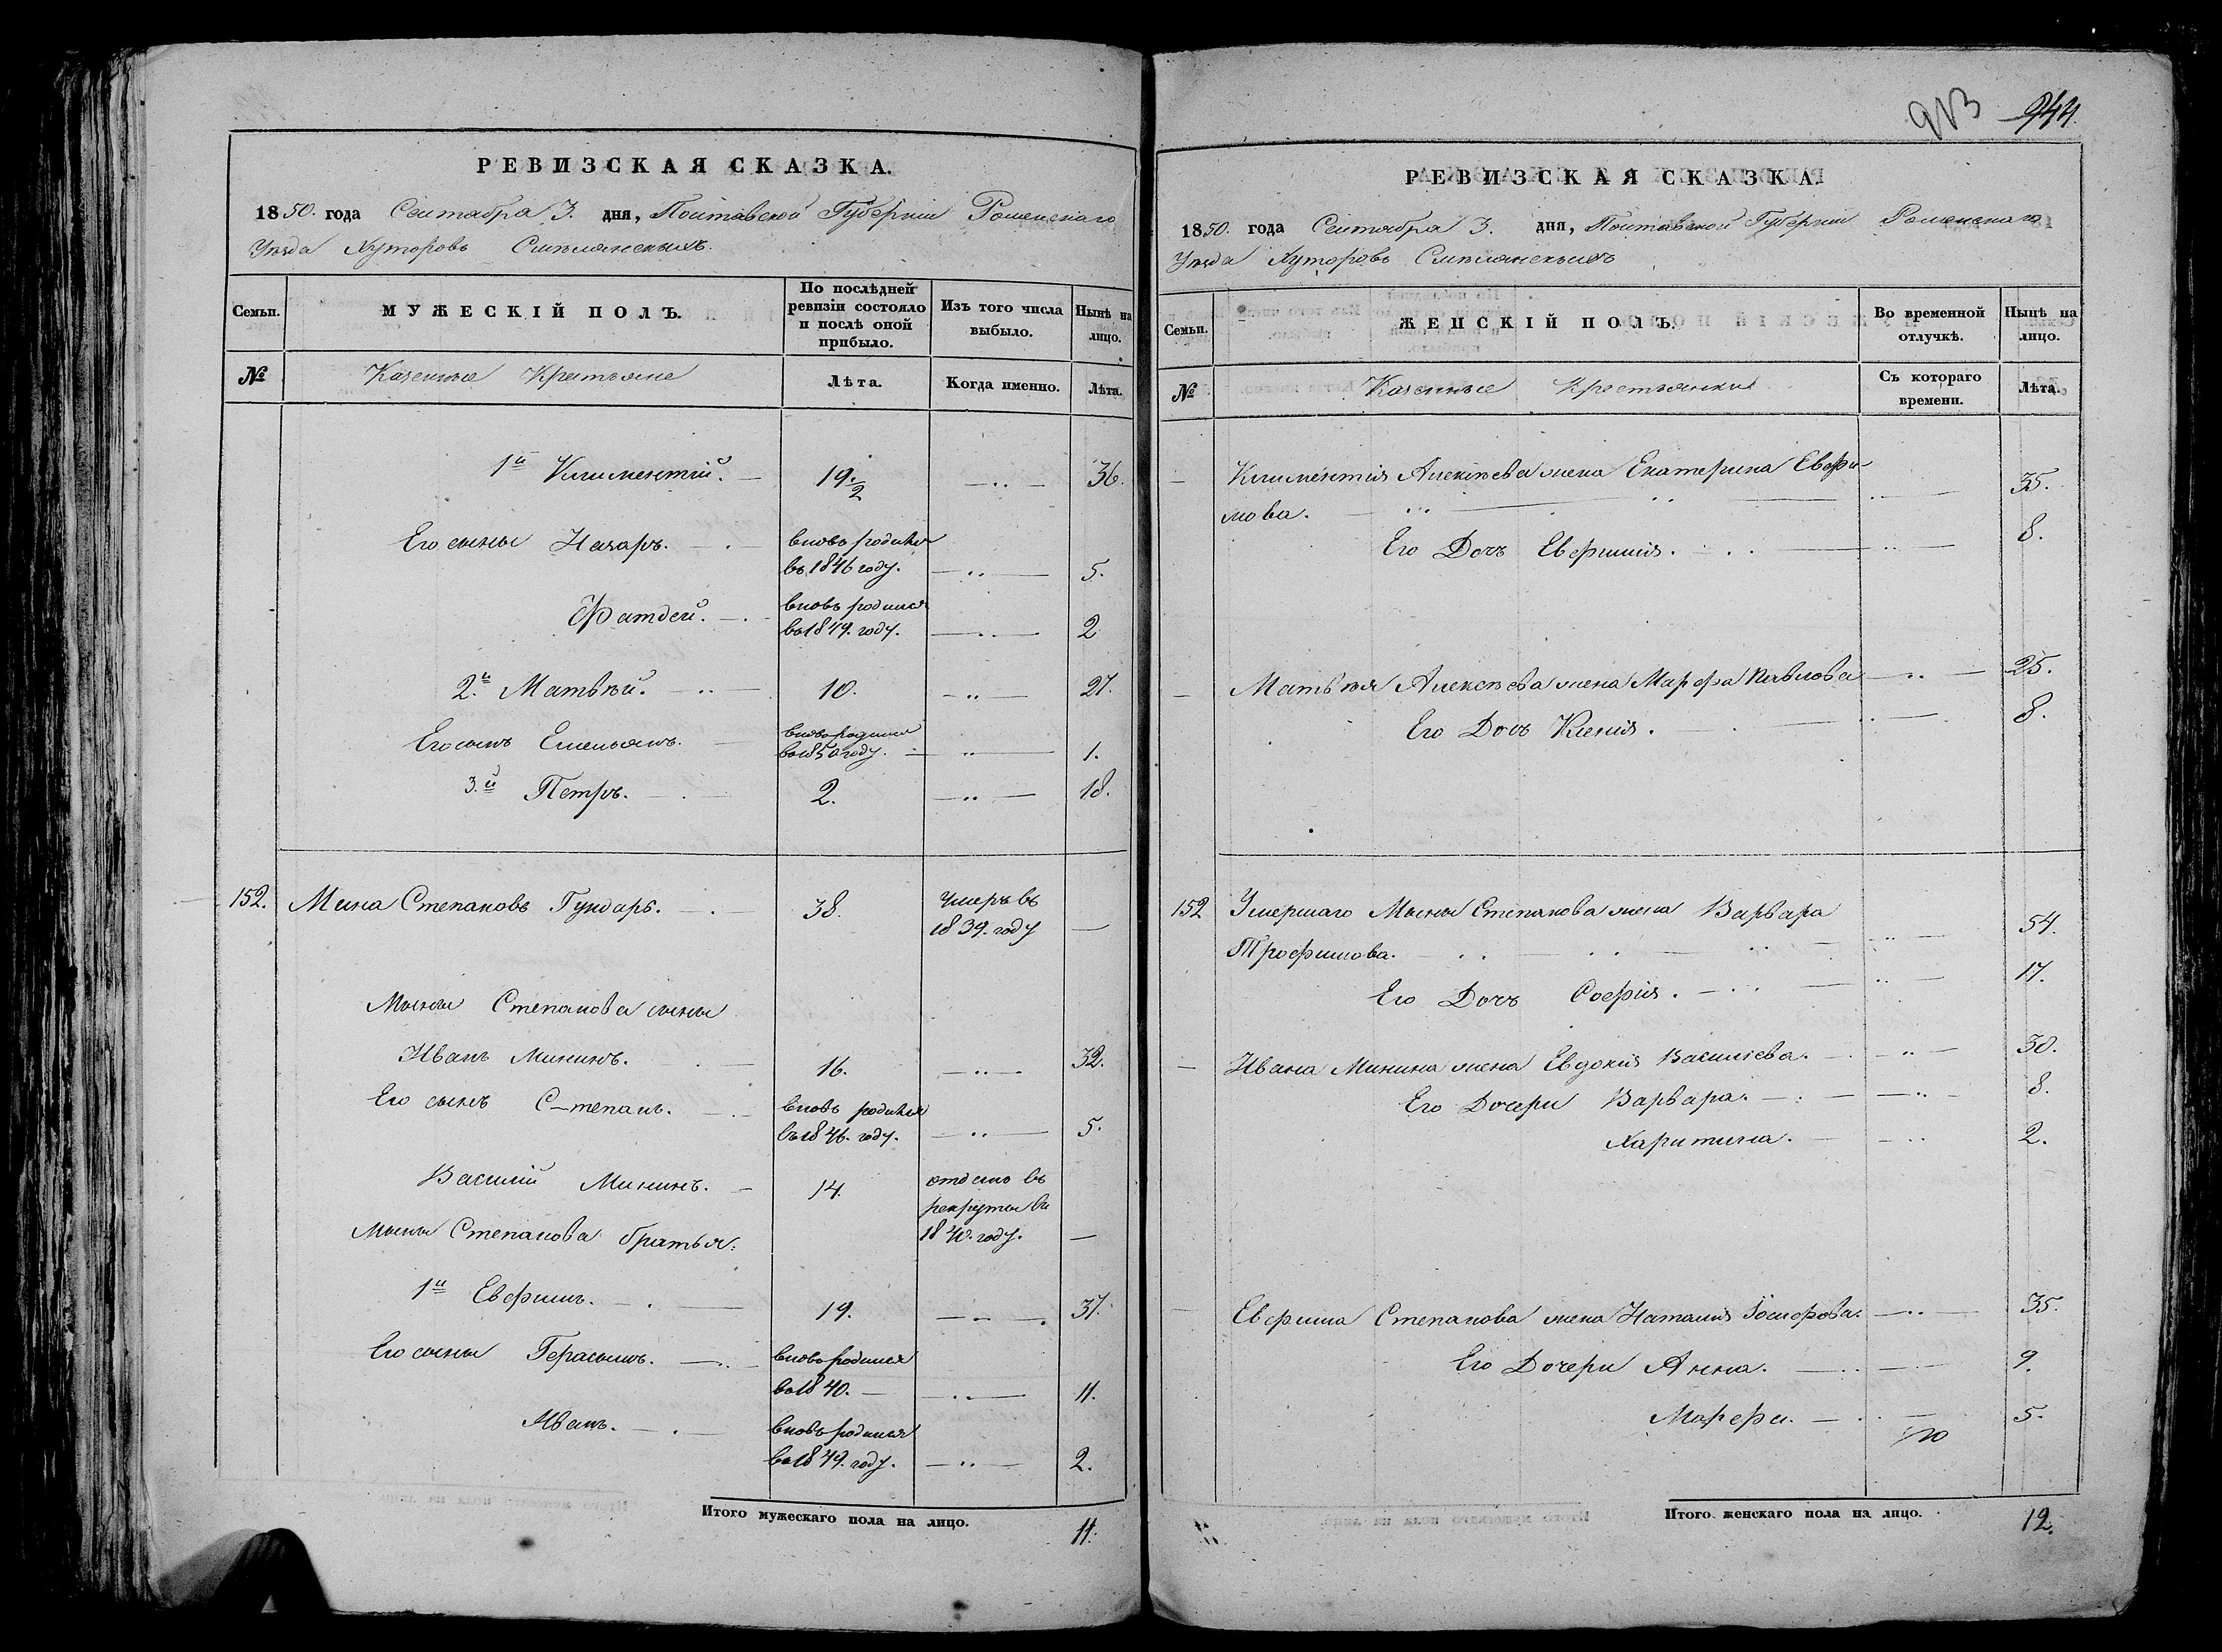 РЕВИЗСКАЯ СКАЗКА.
1850. года Сентабра 3. дня, Полтавской Губерніи Роменскаго
Уѣзда Хуторовъ Смѣлянскихъ.
Семьи.
МУЖЕСКІЙ ПОЛЪ.
По послѣдней
ревизіи состояло
и послѣ оной
прибыло.
Изъ того числа
выбыло.
Нынѣ на
лицо.
№
Казенные Крестьяне
Лѣта.
Когда именно.
Лѣта.
1й Климентій. 19.½ 36.
Его сыны Назаръ. вновь родился
въ 1846 году. 5.
Фатдей. вновь родился
въ 1849. году. 2
2.й Матвѣй. 10. 27.
Его сынъ Емельянъ. вновь родился
въ 1850 году. 1.
3.й Петръ. 2. 18.
152. Мина Степановъ Гундарь. 38. умеръ въ
1839. году
Мины Степанова сыны
Иванъ Мининъ. 16. 32.
Его сынъ Степанъ. вновь родился
въ 1846. году. 5.
Василій Мининъ. 14. отдано въ
рекруты въ
1840. году.
Мины Степанова братья:
1й Евфимъ. 19. 37.
Его сыны Герасимъ. вновь родился
въ 1840. 11.
Иванъ. вновь родился
въ 1849. году. 2.
Итого мужескаго пола на лицо. 11.
913 944.
РЕВИЗСКАЯ СКАЗКА.
1850. года Сентабра 3. дня, Полтавской Губерніи Роменскаго
Уѣзда Хуторовъ Смѣлянскихъ
Семьи.
ЖЕНСКІЙ ПОЛЪ.
Во временной
отлучкѣ.
Нынѣ на
лицо.
№
Казенные Крестьянки
Съ котораго
времени.
Лѣта.
Климентія Алексѣева жена Екатерина Евфи-
мова. 35.
Его Дочь Евфимія. 8.
Матвѣя Алексѣева жена Марфа Павлова 25.
Его Дочь Ксенія. 8.
152 Умершаго Мины Степанова жена Варвара
Трофимова. 54.
Его Дочь Софія. 17.
Ивана Минина жена Евдокія Василіева. 30.
Его Дочери Варвара. 8.
Харитина. 2.
Евфима Степанова жена Наталія Іосифова. 35.
Его Дочери Анна. 9.
Марфа. 5.
Итого женскаго пола на лицо. 12.